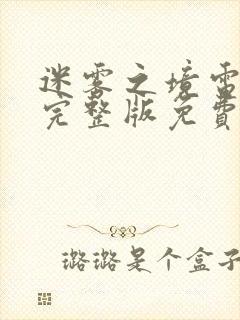 迷雾之境雷
完整版免費
璐璐是个盒子